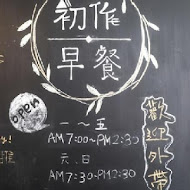 初作
早餐
OPEN
一～五
AM7:00～PM2:30
六、日
AM7:30-PM2:30
歡迎外帶